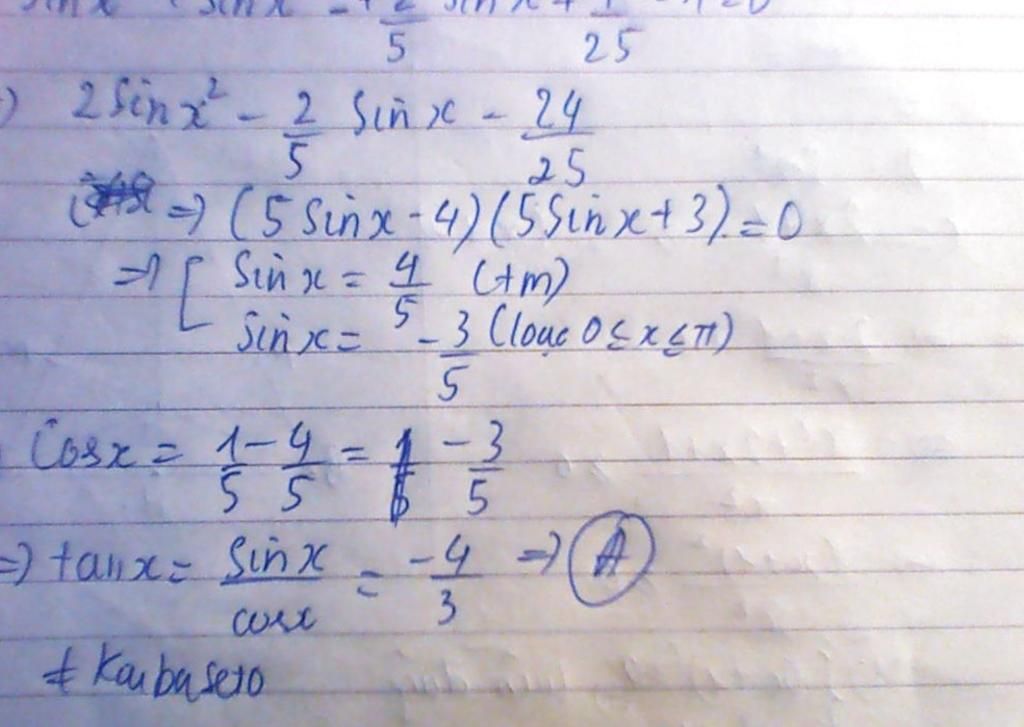 5 25
2 sin x² - 2/5 sin x - 24/25
=> (5 sin x - 4)(5 sin x + 3) = 0
=> [ sin x = 4/5 (tm)
sin x = -3/5 (loại 0 ≤ x ≤ π)
Cos x = 1/5 - 4/5 = -3/5
=> tan x = sin x / cos x = -4/3 => A
# Kaibaseto